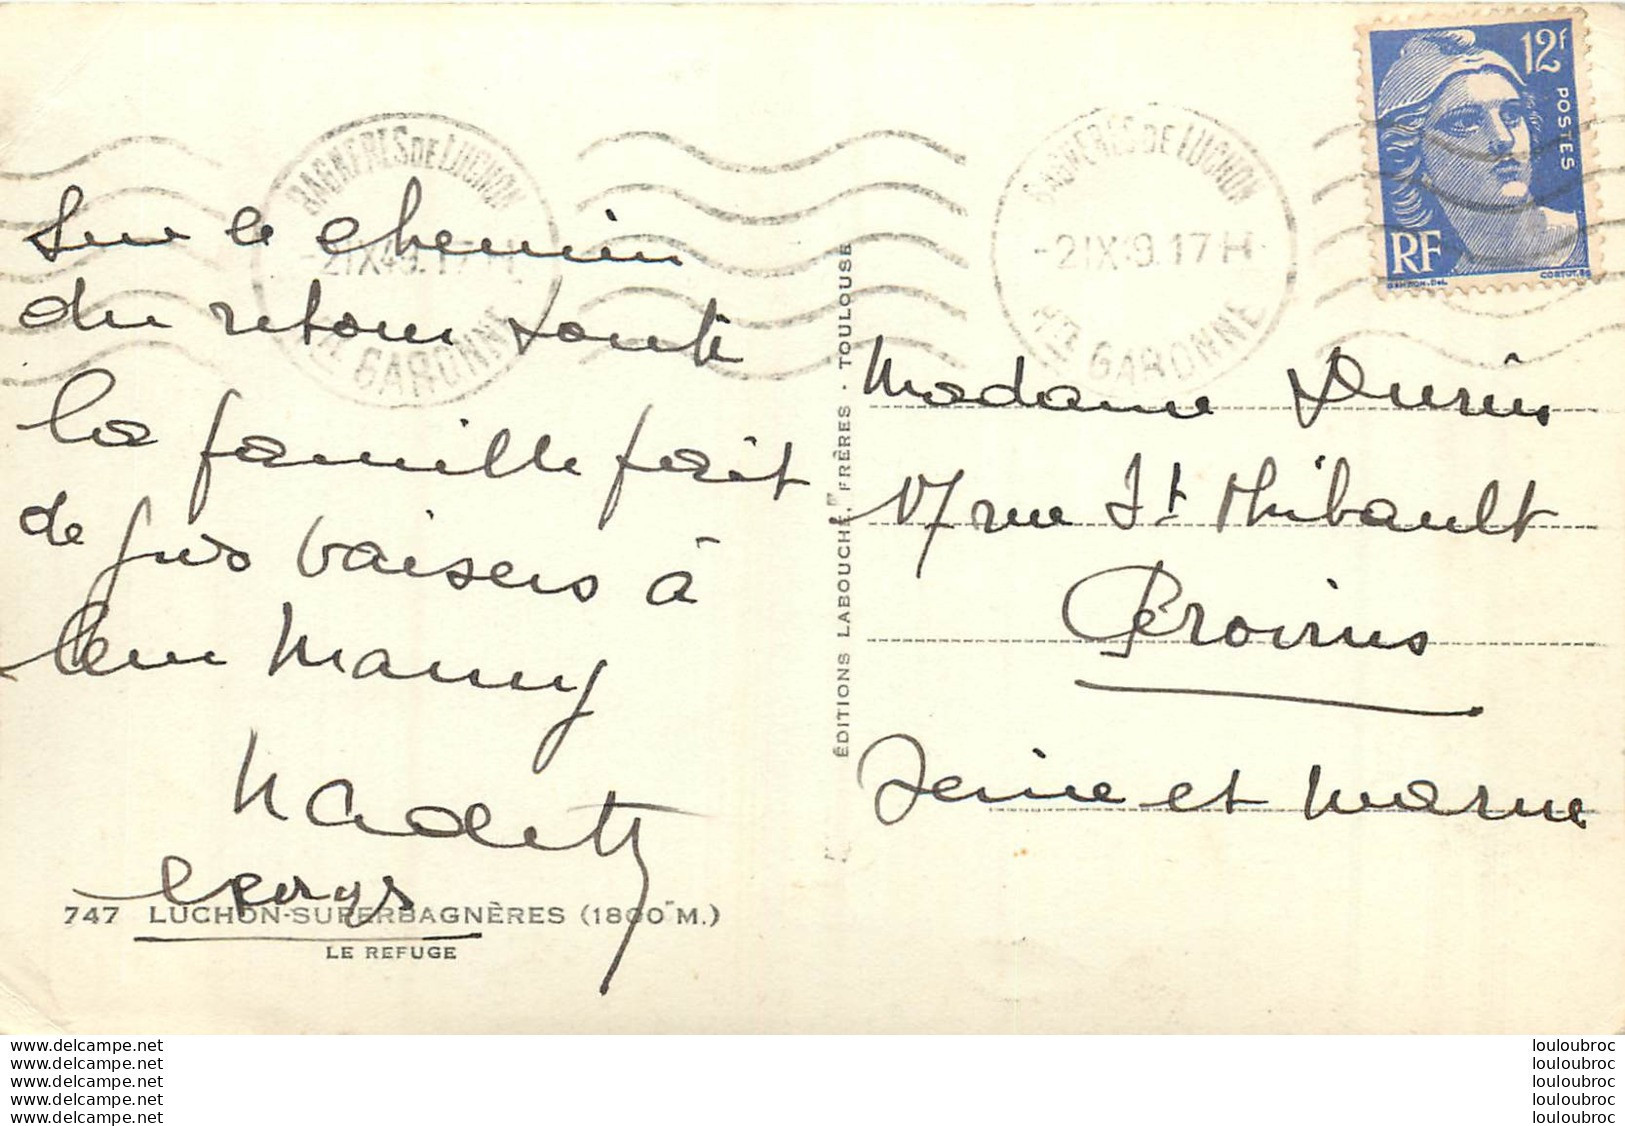 BAGNERES DE LUCHON
-2 IX 49. 17 H
HTE GARONNE
BAGNERES DE LUCHON
-2 IX 49. 17 H
HTE GARONNE
12F
POSTES
RF
GANDON. Del.
CORTOT. sc
Sur le chemin
du retour toute
la famille fait
de gros baisers à
leur Mamy
Madame
17 rue St Thibault
Provins
Seine et Marne
ÉDITIONS LABOUCHE FRÈRES - TOULOUSE
747 LUCHON-SUPERBAGNÈRES (1800 M.)
LE REFUGE
www.delcampe.net
www.delcampe.net
www.delcampe.net
www.delcampe.net
www.delcampe.net
louloubroc
louloubroc
louloubroc
louloubroc
louloubroc